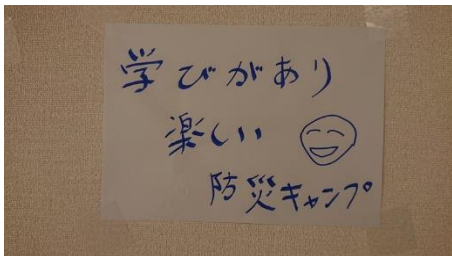 学びがあり
楽しい
防災キャンプ